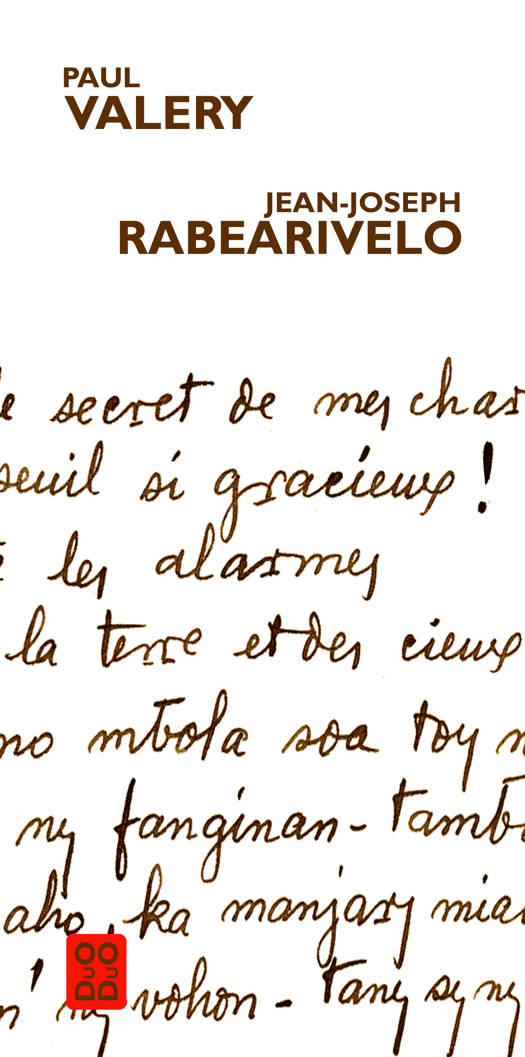 PAUL
VALERY
JEAN-JOSEPH
RABEARIVELO
secret de mes char
seuil si gracieux !
les alarmes
la terre et des cieux
no mbola soa toy n
ny fanginan - tamb
aho, ka manjary mia
n' ny vohon - tany sy ny
DUO
DUO